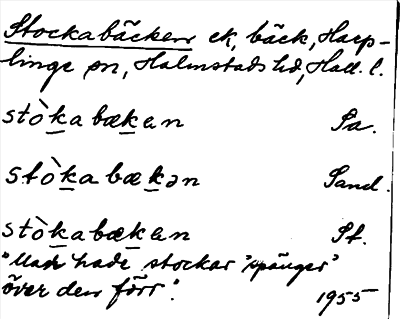 Stockabäcken ek, bäck, Harp-
linge sn, Halmstads hd, Hall. l.
stòka bækan Sa.
stòka bækən Sand.
stòkabækan St.
"Man hade stockar 'spänger'
över den förr".
1955